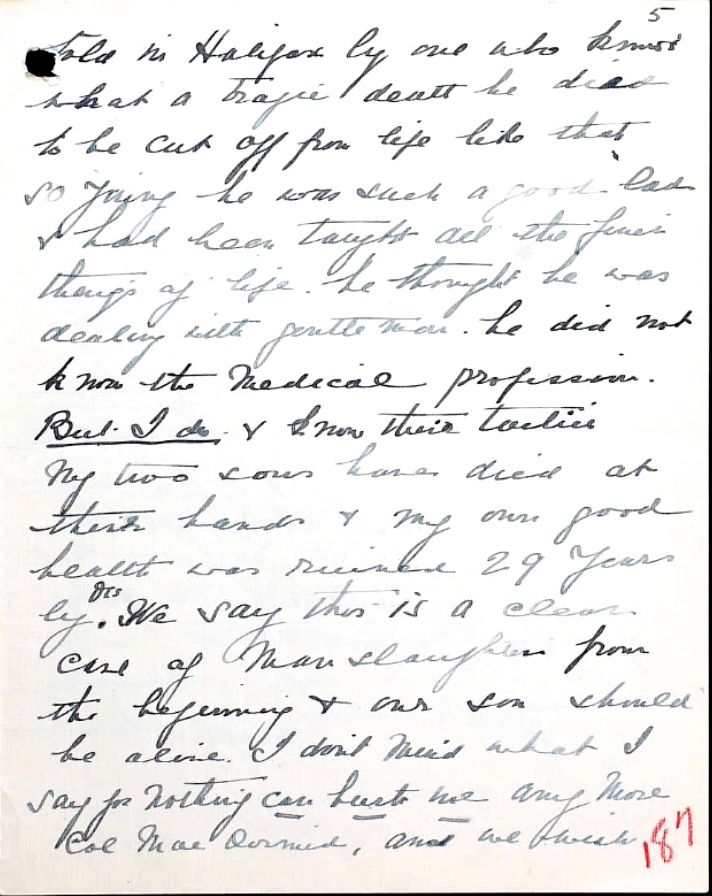 5
told in Halifax by one who knows
what a tragic death he died
to be cut off from life like that
so young he was such a good lad
& had been taught all the finer
things of life. he thought he was
dealing with gentlemen. he did not
know the Medical profession.
But I do. & I know their tactics
My two sons have died at
their hands & my own good
health was ruined 29 Years
by Drs. We say this is a clear
case of Manslaughter from
the beginning & our son should
be alive. I don't mind what I
say for nothing can hurt me any More
Col Mac Dermid, and we wish
187